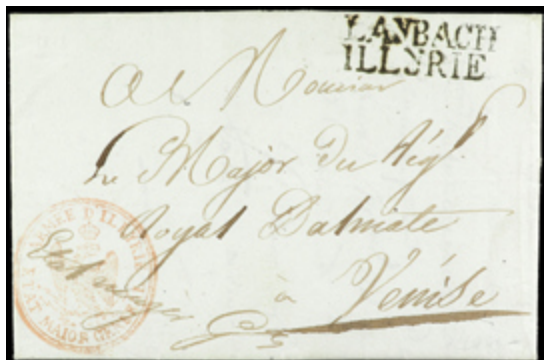 LAYBACH
ILLYRIE
A Monsieur
Le Major du Rég.t
Royal Dalmate
à Venise
ARMÉE D'ILLYRIE
ETAT MAJOR GENE
Etat major G